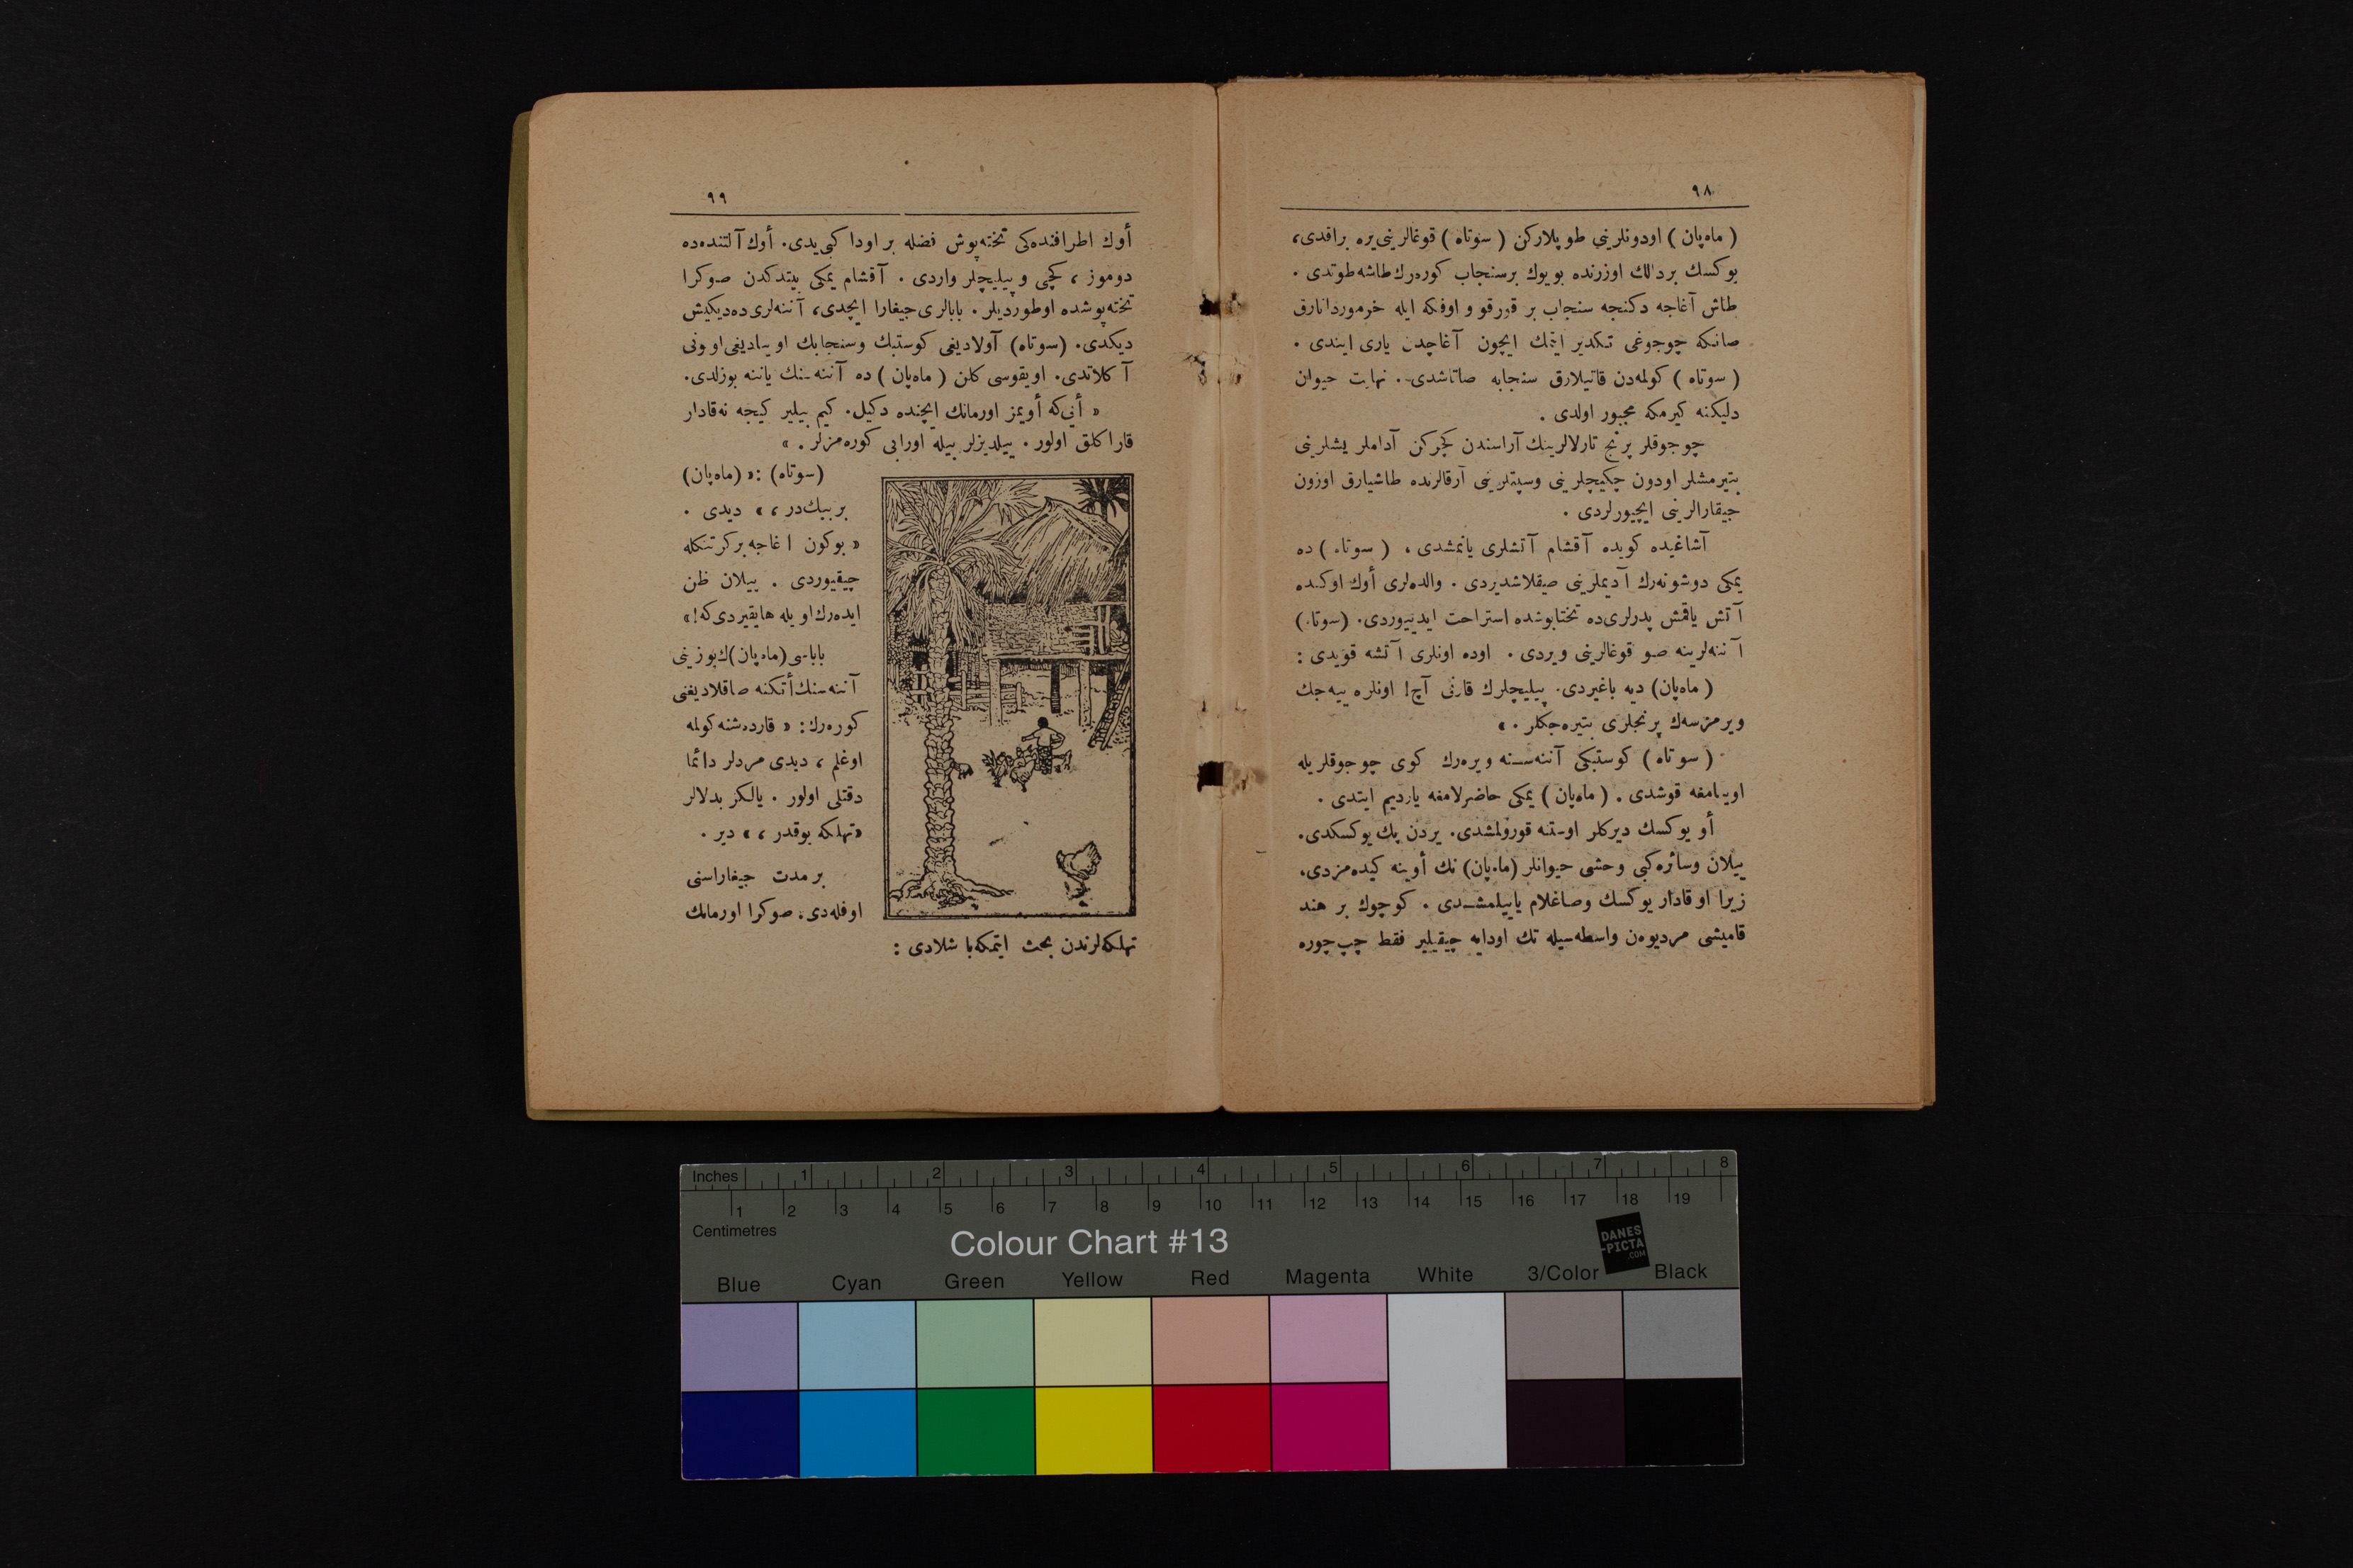 ٩٨
( ماه‌پان ) اودونلرینی طوپلارکن ( سوتاه ) قوغالرینی یره براقدی،
یوکسك بر دالك اوزرنده بویوك برسنجاب کوره‌رك طاشه طوتدی .
طاش آغاجه دکنجه سنجاب بر قورقو و اوفکه ایله خرموردانارق
صانکه چوجوغی تکدیر ایتمك ایچون آغاجدن یاری ایندی .
( سوتاه ) کولمه‌دن قاتیلارق سنجابه صاتاشدی . نهایت حیوان
دلیکنه کیرمکه مجبور اولدی .
چوجوقلر پرنج تارلالرینك آراسندن کچرکن آداملر یشلرینی
بتیرمشلر اودون چکیچلرینی وسپتلرینی آرقالرنده طاشیارق اوزون
جیقارالرینی ایچیورلردی .
آشاغیده کویده آقشام آتشلری یانمشدی ، ( سوتاه ) ده
یمکی دوشونه‌رك آدیملرینی صیقلاشدیردی . والده‌لری أوك اوکنده
آتش یاقمش پدرلری‌ده تختابوشده استراحت ایدییوردی. (سوتاه)
آننه‌لرینه صو قوغالرینی ویردی . اوده اونلری آتشه قویدی :
( ماه‌پان) دیه باغیردی. پیلیچلرك قارنی آچ! اونلره ییه‌جك
ویرمزسه‌ك پرنجلری بتیره‌جکلر . »
( سوتاه ) کوستبکی آننه‌سنه ویره‌رك کوی چوجوقلریله
اوینامغه قوشدی . ( ماه‌پان ) یمکی حاضرلامغه یاردیم ایتدی .
أو یوکسك دیرکلر اوستنه قورولمشدی. یردن پك یوکسکدی.
ییلان وسائره کبی وحشی حیوانلر (ماه‌پان) نك أوینه کیده‌مزدی.
زیرا او قادار یوکسك وصاغلام یاپیلمشدی . کوچوك بر هند
قامیشی مردیوه‌ن واسطه‌سیله تك اودایه چیقیلیر فقط چپ چوره
٩٩
أوك اطرافنده‌کی تخته‌پوش فضله بر اودا کبی‌یدی. أوك آلتنده‌ده
دوموز ، کچی و پیلیچلر واردی . آقشام یمکی بیتدکدن صوکرا
تخته‌پوشده اوطوردیلر . بابالری جیغارا ایچدی، آننه‌لری ده‌دیکیش
دیکدی. (سوتاه) آولادیغی کوستبك وسنجابك اوینادیغی اوونی
آکلاتدی. اویقوسی کلن ( ماه‌پان ) ده آننه‌سنك یاننه بوزلدی.
« أپی‌که أویمز اورمانك ایچنده دکیل. کیم بیلیر کیجه نه‌قادار
قاراکلق اولور . ییلدیزلر بیله اورایی کوره‌مزلر . »
(سوتاه) : « (ماه‌پان)
بر بیبك‌در ، » دیدی .
« بوکون اغاجه بر کرتنکله
چیقیوردی . ییلان ظن
ایده‌رك اویله هایقیردی‌که! »
باباسی (ماه‌پان)ك یوزینی
آننه‌سنك أتکنه صاقلادیغنی
کوره‌رك : « قارده‌شنه کولمه
اوغلم ، دیدی مردلر دائما
دقتلی اولور . یالکز بدلالر
«تهلکه یوقدر ، » دیر .
بر مدت جیغاراسنی
اوفله‌دی، صوکرا اورمانك
تهلکه‌لرندن بحث ایتمکه‌باشلادی :
Inches 1 2 3 4 5 6 7 8
1 2 3 4 5 6 7 8 9 10 11 12 13 14 15 16 17 18 19
Centimetres
Colour Chart #13
DANES
-PICTA
.COM
Blue Cyan Green Yellow Red Magenta White 3/Color Black